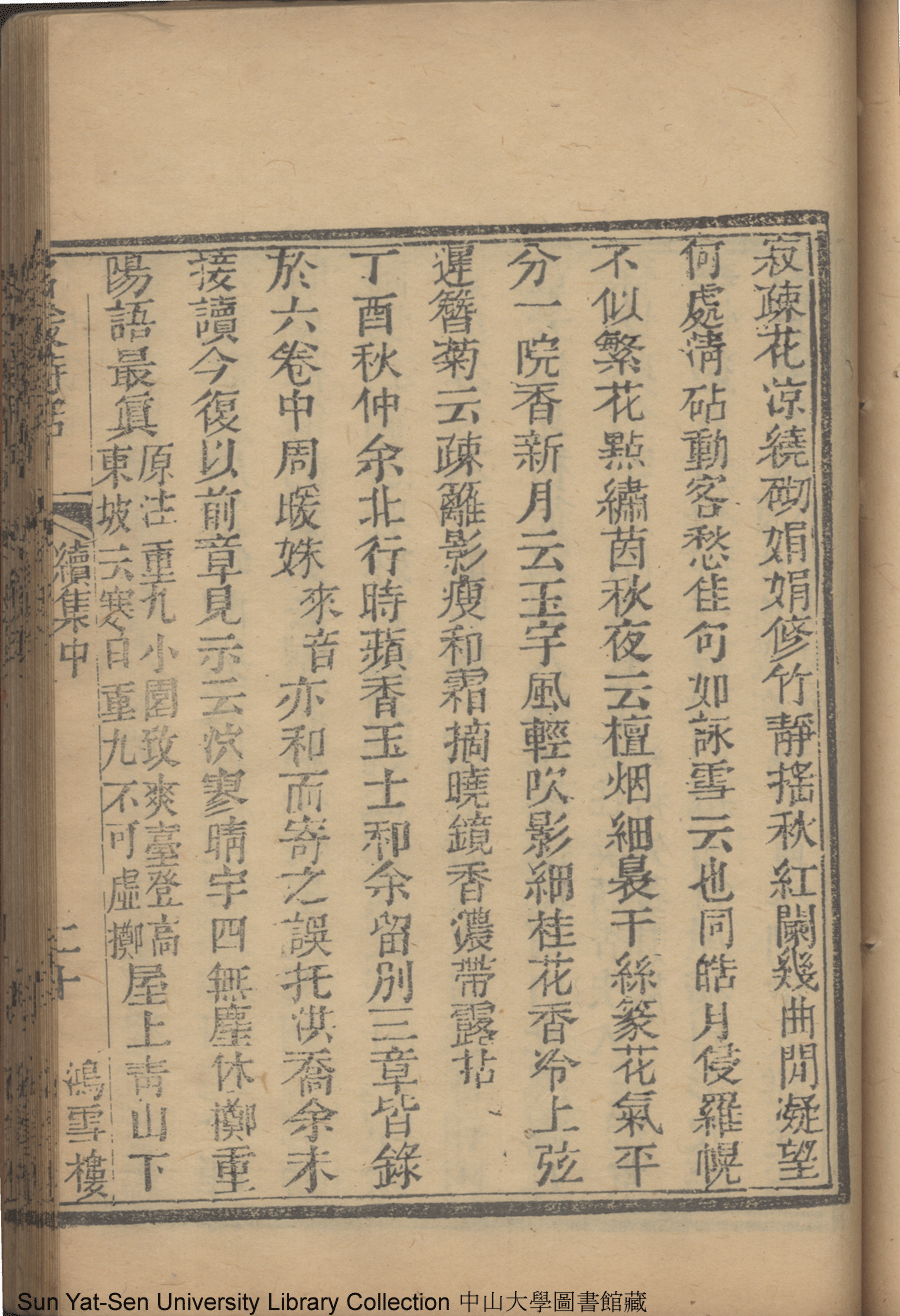 寂疎花凉繞砌娟娟修竹靜搖秋紅闌幾曲閒凝望
何處淸砧動客愁佳句如詠雪云也同皓月侵羅幌
不似繁花點繡茵秋夜云檀烟細裊千絲篆花氣平
分一院香新月云玉宇風輕吹影細桂花香冷上弦
遲簪菊云疎籬影瘦和霜摘曉鏡香濃帶露拈
丁酉秋仲余北行時蘋香玉士和余留別三章皆錄
於六卷中周暖姝 來音亦和而寄之誤托洪喬余未
接讀今復以前章見示云泬寥晴宇四無塵休擲重
陽語最眞
原注重九小園致爽臺登高
東坡云寒自重九不可虛擲
屋上靑山下
續集中
二十
鴻雪樓
Sun Yat-Sen University Library Collection 中山大學圖書館藏